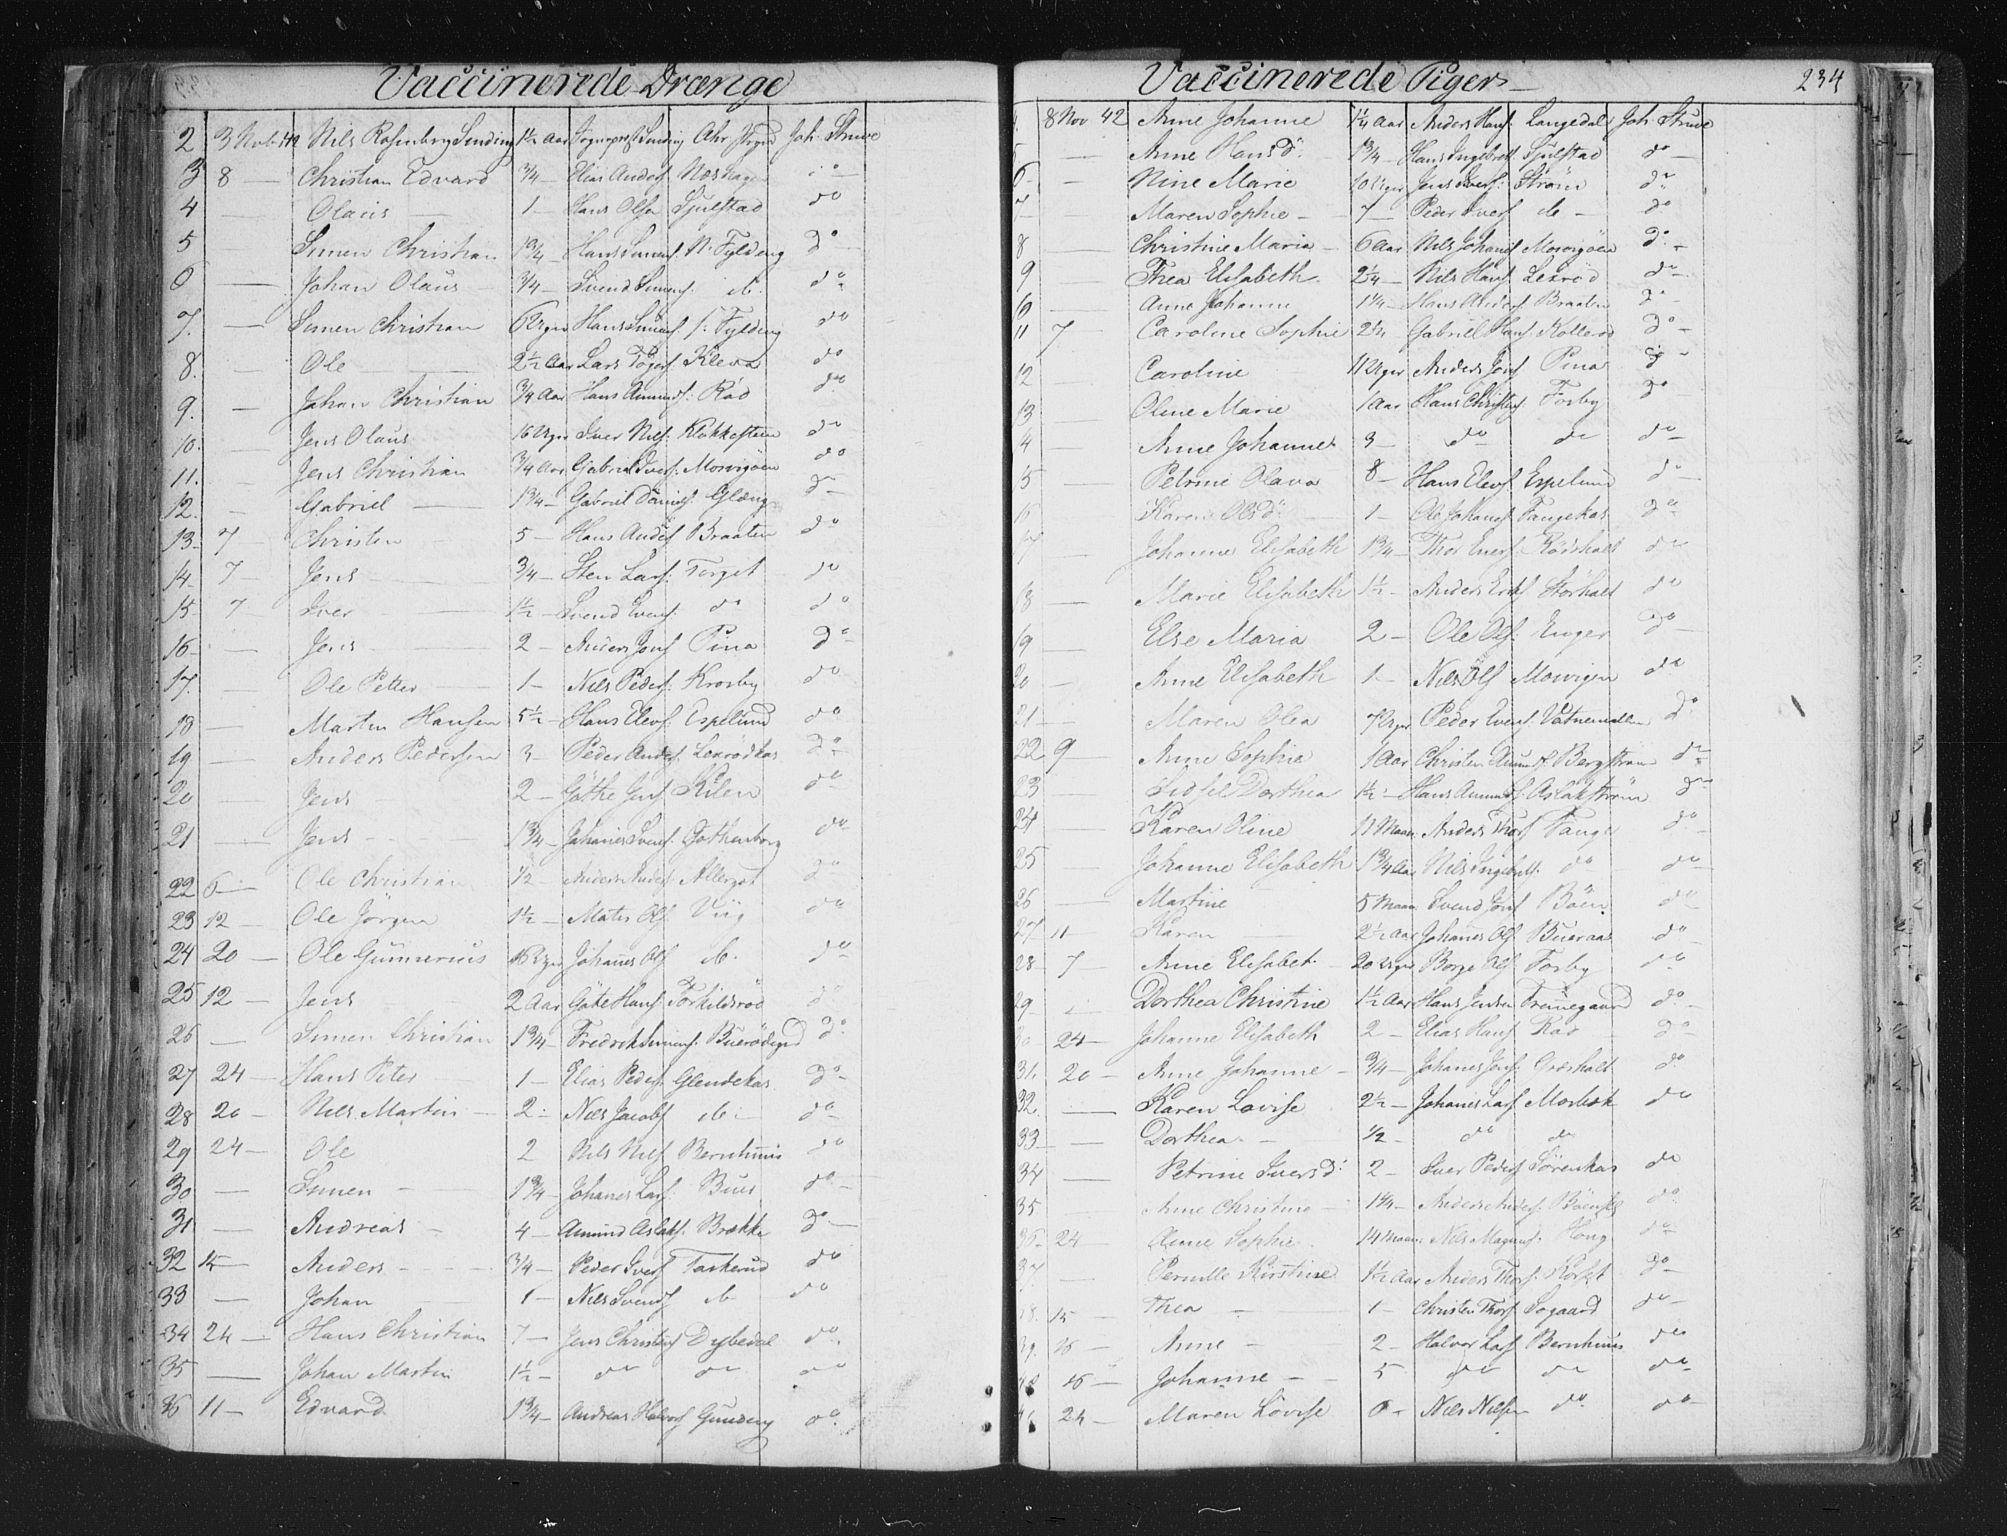 Vaccinerede Drænge
2 3 Novb 42 Nils Rosenberg Sinding 1½ Aar Sogneprest Sinding Joh. Struve
3 8 — Christian Edvard ¾ — Elias Anders. Næshagen do
4 — Olaus 1 — Hans Olsen Sjulstad do
5 — Simen Christian 1¾ — Hans Simens. N. Fylding do
6 — Johan Olaus ¾ — Svend Simens. do do
7. — Simen Christian 6 Uger Hans Simens. S. Fylding do
8. — Ole 2½ Aar Lars Kleva do
9. — Johan Christian ¾ Aar Hans Amunds. Röd do
10. — Jens Olaus 16 Uger Iver Nils. Klokkesteen do
11. — Jens Christian ¾ Aar Gabriel Ivers. Morvigøen do
12. — Gabriel 1¾ — Gabriel Daniels. Glæng do
13 7 Christen 5 — Hans Anders Braaten do
14 7 — Jens ¾ — Sten Lars. Torget do
15 7 — Iver 1½ — Svend Evens. do do
16 — Jens 2 — Anders Jons Pina do
17. — Ole Petter 1 — Nils Peders. Krosby do
18 — Martin Hansen 5½ — Hans Elevs. Espelund do
19 — Anders Pedersen 3 — Peder Anders. Lexrödkas do
20 — Jens 2 — Göthe Jens Kilen do
21 — Jens 1¾ — Johanes Svens. Gothenborg do
22 6 — Ole Christian ½ — Anders Anders. Allergot do
23 12 — Ole Jörgen 1½ — Mats Ols Viig do
24 20 — Ole Gunnerius 16 Uger Johanes Ols do. do
25 12 — Jens 2 Aar Göte Hans. Torkildsröd do
26 — Simen Christian 1¾ — Fredrik Simens. Buerödgrd do
27 24 — Hans Peter 1 — Elias Peders. Glendekas do
28 20 — Nils Martin 2 — Niels Jacobs do do
29 24 — Ole 2 Nils Nils Bernhuus do
30 — Simen 1¾ — Johanes Lars. Buer do
31 — Andreas 4 — Amund Aslaks. Brække do
32 15 — Anders ¾ — Peder Ivers Taskerud do
33 — Johan 1 — Nils Svends do do
34 24 — Hans Christian 7 — Jens Christens Dybedal do
35 — Johan Martin 1½ — do do do
36 11 — Edvard 1¾ — Andreas Halvors do
Vaccinerede Piger 234
8 Nov 42 Anne Johanne 1¼ Aar Anders Hans. Langedal Joh. Struve
5 — Anne Hansd. 1¾ — Hans Ingebret. Sjulstad do
6 — Nine Marie 10 Uger Jens Ivers. Ström do
7 — Maren Sophie — 7 — Peder Ivers do — do
8 — Christine Maria — 6 Aar Nils Johans Morvigöen do
9 — Thea Elisabeth 2¼ — Nils Hans. Lexröd do
10 — Anne Johanne 1¼ — Hans Anders Braaten do
11 7 Caroline Sophie 2¼ Gabriel Hans. Kolleröd do
12 — Caroline 11 Uger Anders Jons Pina do
13 — Oline Marie 1 Aar Hans Christens. Torby do
4 — Anne Johanne 3 — do do do
5 — Petrine Olava 8 — Hans Elevs Espelund do
6 — Karen Olsd. 1 — Ole Johans Tangekas do
17 — Johanne Elisabeth 1¾ — Thor Evers. Rödshalt do
18 — Marie Elisabeth 1½ — Anders Eriks Störhalt do
19 — Else Maria 2 — Ole Ols. Enger do
20 — Anne Elisabeth 1 — Nils Ols Morvigen do
21 — Maren Olea 7 Uger Peder Evens. Vatnemellem do
22 9 Anne Sophia 1 Aar Christen Amunds Bergström do
23 — Sidsel Dorthea 1½ — Hans Amunds. Aslakström do
24 — Karen Oline 11 Maan Anders Thors Tange do
25 — Johanne Elisabeth 1¾ Aar Nils Ingebrets. do do
26 — Martine 5 Maan Svend Jons Böen do
27 11 Karen 2½ Aar Johanes Ols Bueraas do
28 7 — Anne Elisabet 20 Uger Borge Ols Torby do
29 — Dorthea Christine 1½ Aar Hans Jensen Frenegaard do
30 24 — Johanne Elisabeth 2 — Elias Hans Röd do
31. 20 — Anne Johanne — ¾ — Johanes Jens. Oreshalt do
32. — Karen Lovise 2½ — Johanes Lars Mosbæk do
33 — Dorthea ½ — do do
34 — Petrine Iversd. 2 — Iver Peders Sörenkas do
35 — Anne Christine — 1¼ — Anders Anders. do
36 24 — Anne Sophie 14 Maan Nils Magnus. Houg do
37 — Pernille Kirstine 1½ Aar Anders Thors. Korset do
38. 15 — Thea — 1 — Christen Thors Sogaard do
39. 16 — Anne — 2 — Halvor Lars Bernhuus do
40 16 — Johanne — 5 do do do
41 24 — Maren Lovise 6 — Niels Nielsen do do